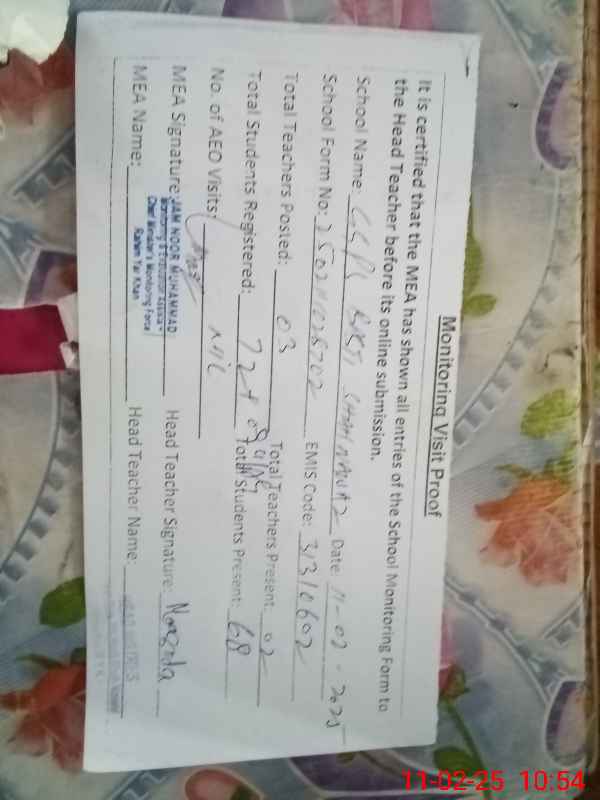 Monitoring Visit Proof
It is certified that the MEA has shown all entries of the School Monitoring Form to
the Head Teacher before its online submission.
School Name: GGPS SHAH NAWAZ Date: 11-02-2025
School Form No: EMIS Code: 31310602
Total Teachers Posted: 03 Total Teachers Present: 02
Total Students Registered: 72+ Total Students Present: 68
No. of AEO Visits: NIL
MEA Signature: Head Teacher Signature:
JAM NOOR MUHAMMAD
Monitoring & Evaluation Assistant
Chief Minister's Monitoring Force
Rahim Yar Khan
MEA Name: Head Teacher Name:
11-02-25 10:54